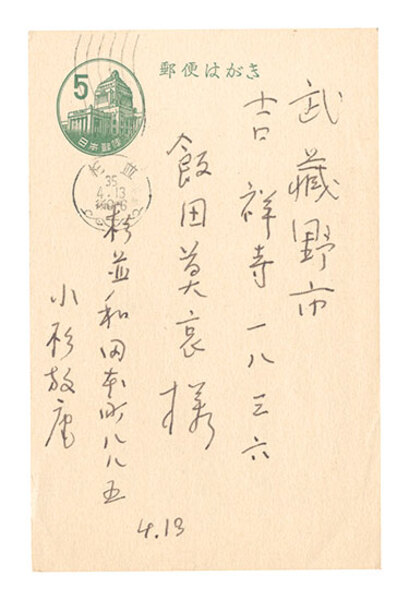 郵便はがき
5
日本郵便
杉並
35
4.13
武蔵野市
吉祥寺一八三六
飯田莫哀様
杉並和田本町八八五
小杉放庵
4.13